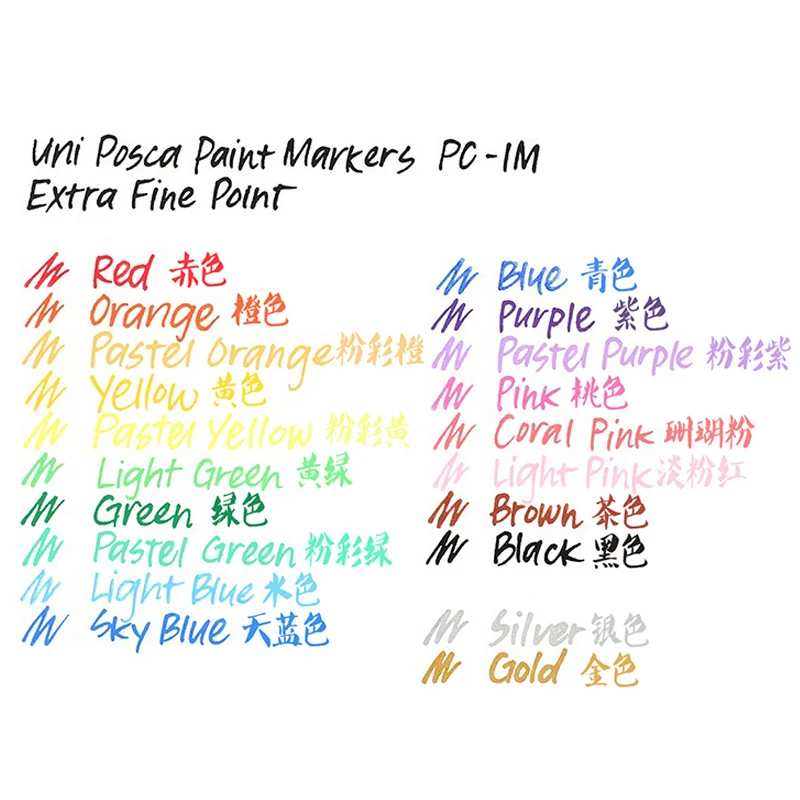 Uni Posca Paint Markers PC-1M
Extra Fine Point
Red 赤色
Orange 橙色
Pastel Orange 粉彩橙
Yellow 黄色
Pastel Yellow 粉彩黄
Light Green 黄绿
Green 绿色
Pastel Green 粉彩绿
Light Blue 水色
Sky Blue 天蓝色
Blue 青色
Purple 紫色
Pastel Purple 粉彩紫
Pink 桃色
Coral Pink 珊瑚粉
Light Pink 淡粉红
Brown 茶色
Black 黑色
Silver 银色
Gold 金色